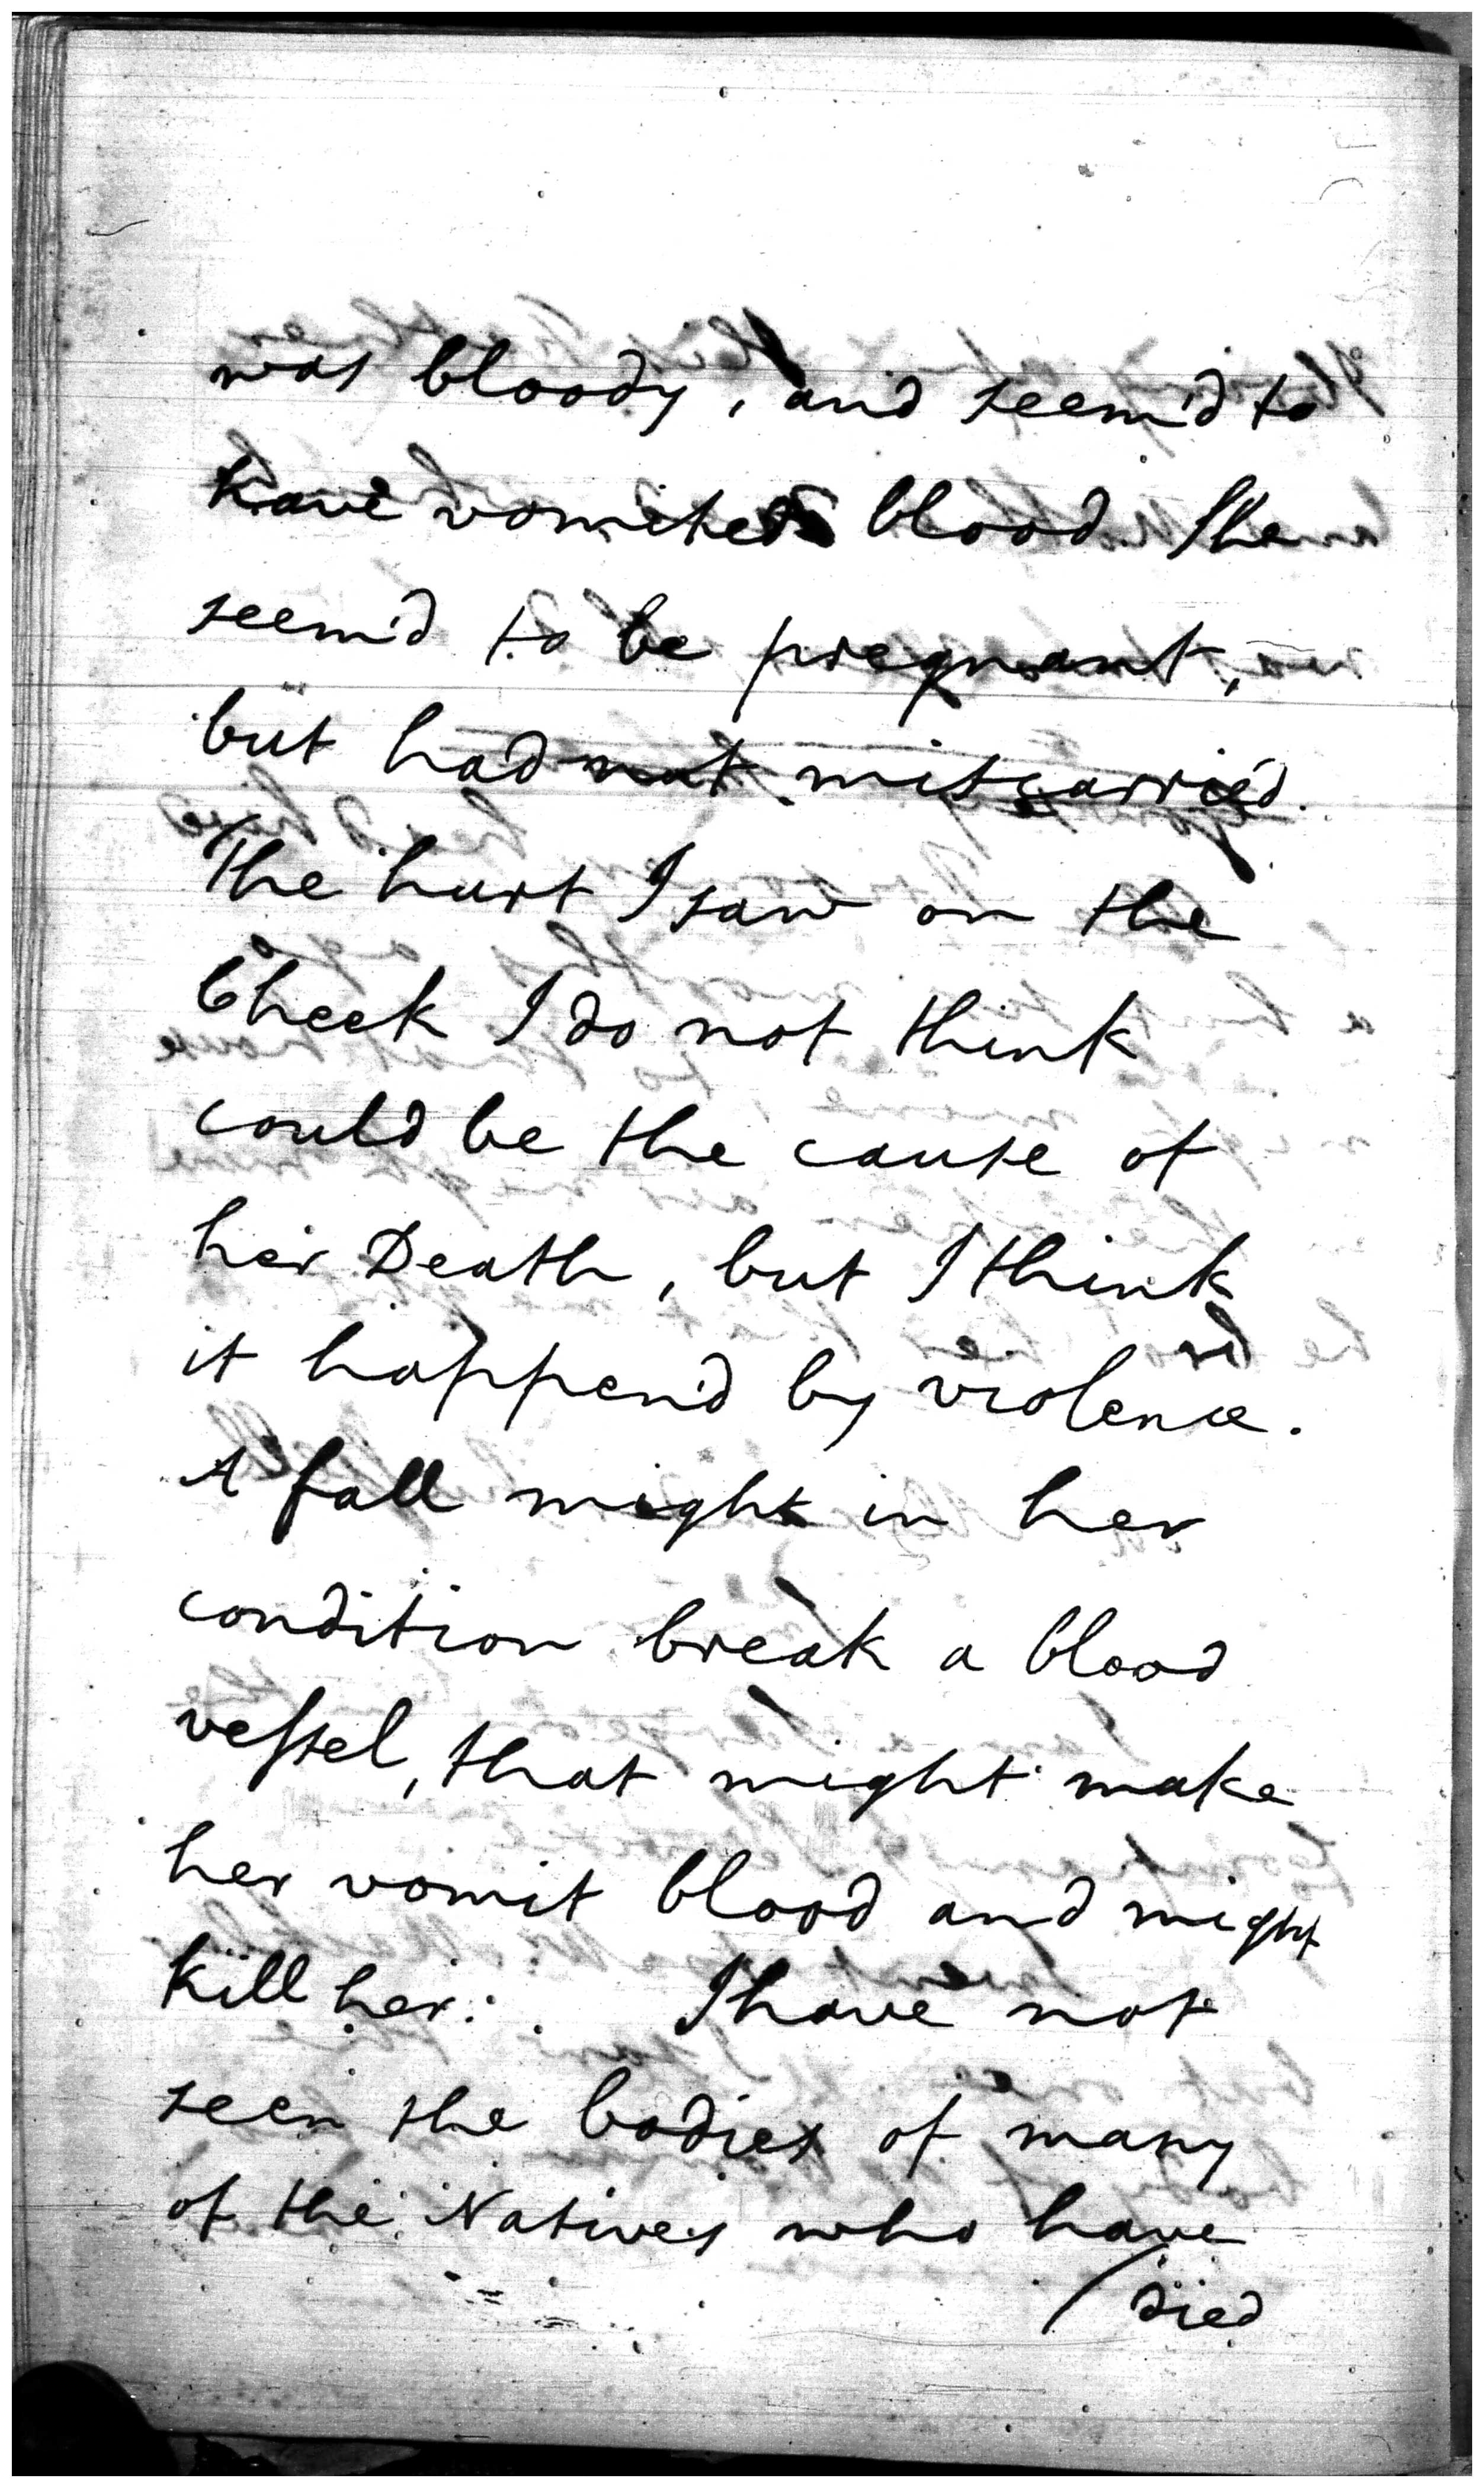 was bloody, and seem'd to
have vomited blood. She
seem'd to be pregnant,
but had not miscarried.
The hurt I saw on the
Cheek I do not think
could be the cause of
her Death, but I think
it happen'd by violence.
A fall might in her
condition break a blood
veſsel, that might make
her vomit blood and might
kill her. I have not
seen the bodies of many
of the Natives who have
(died